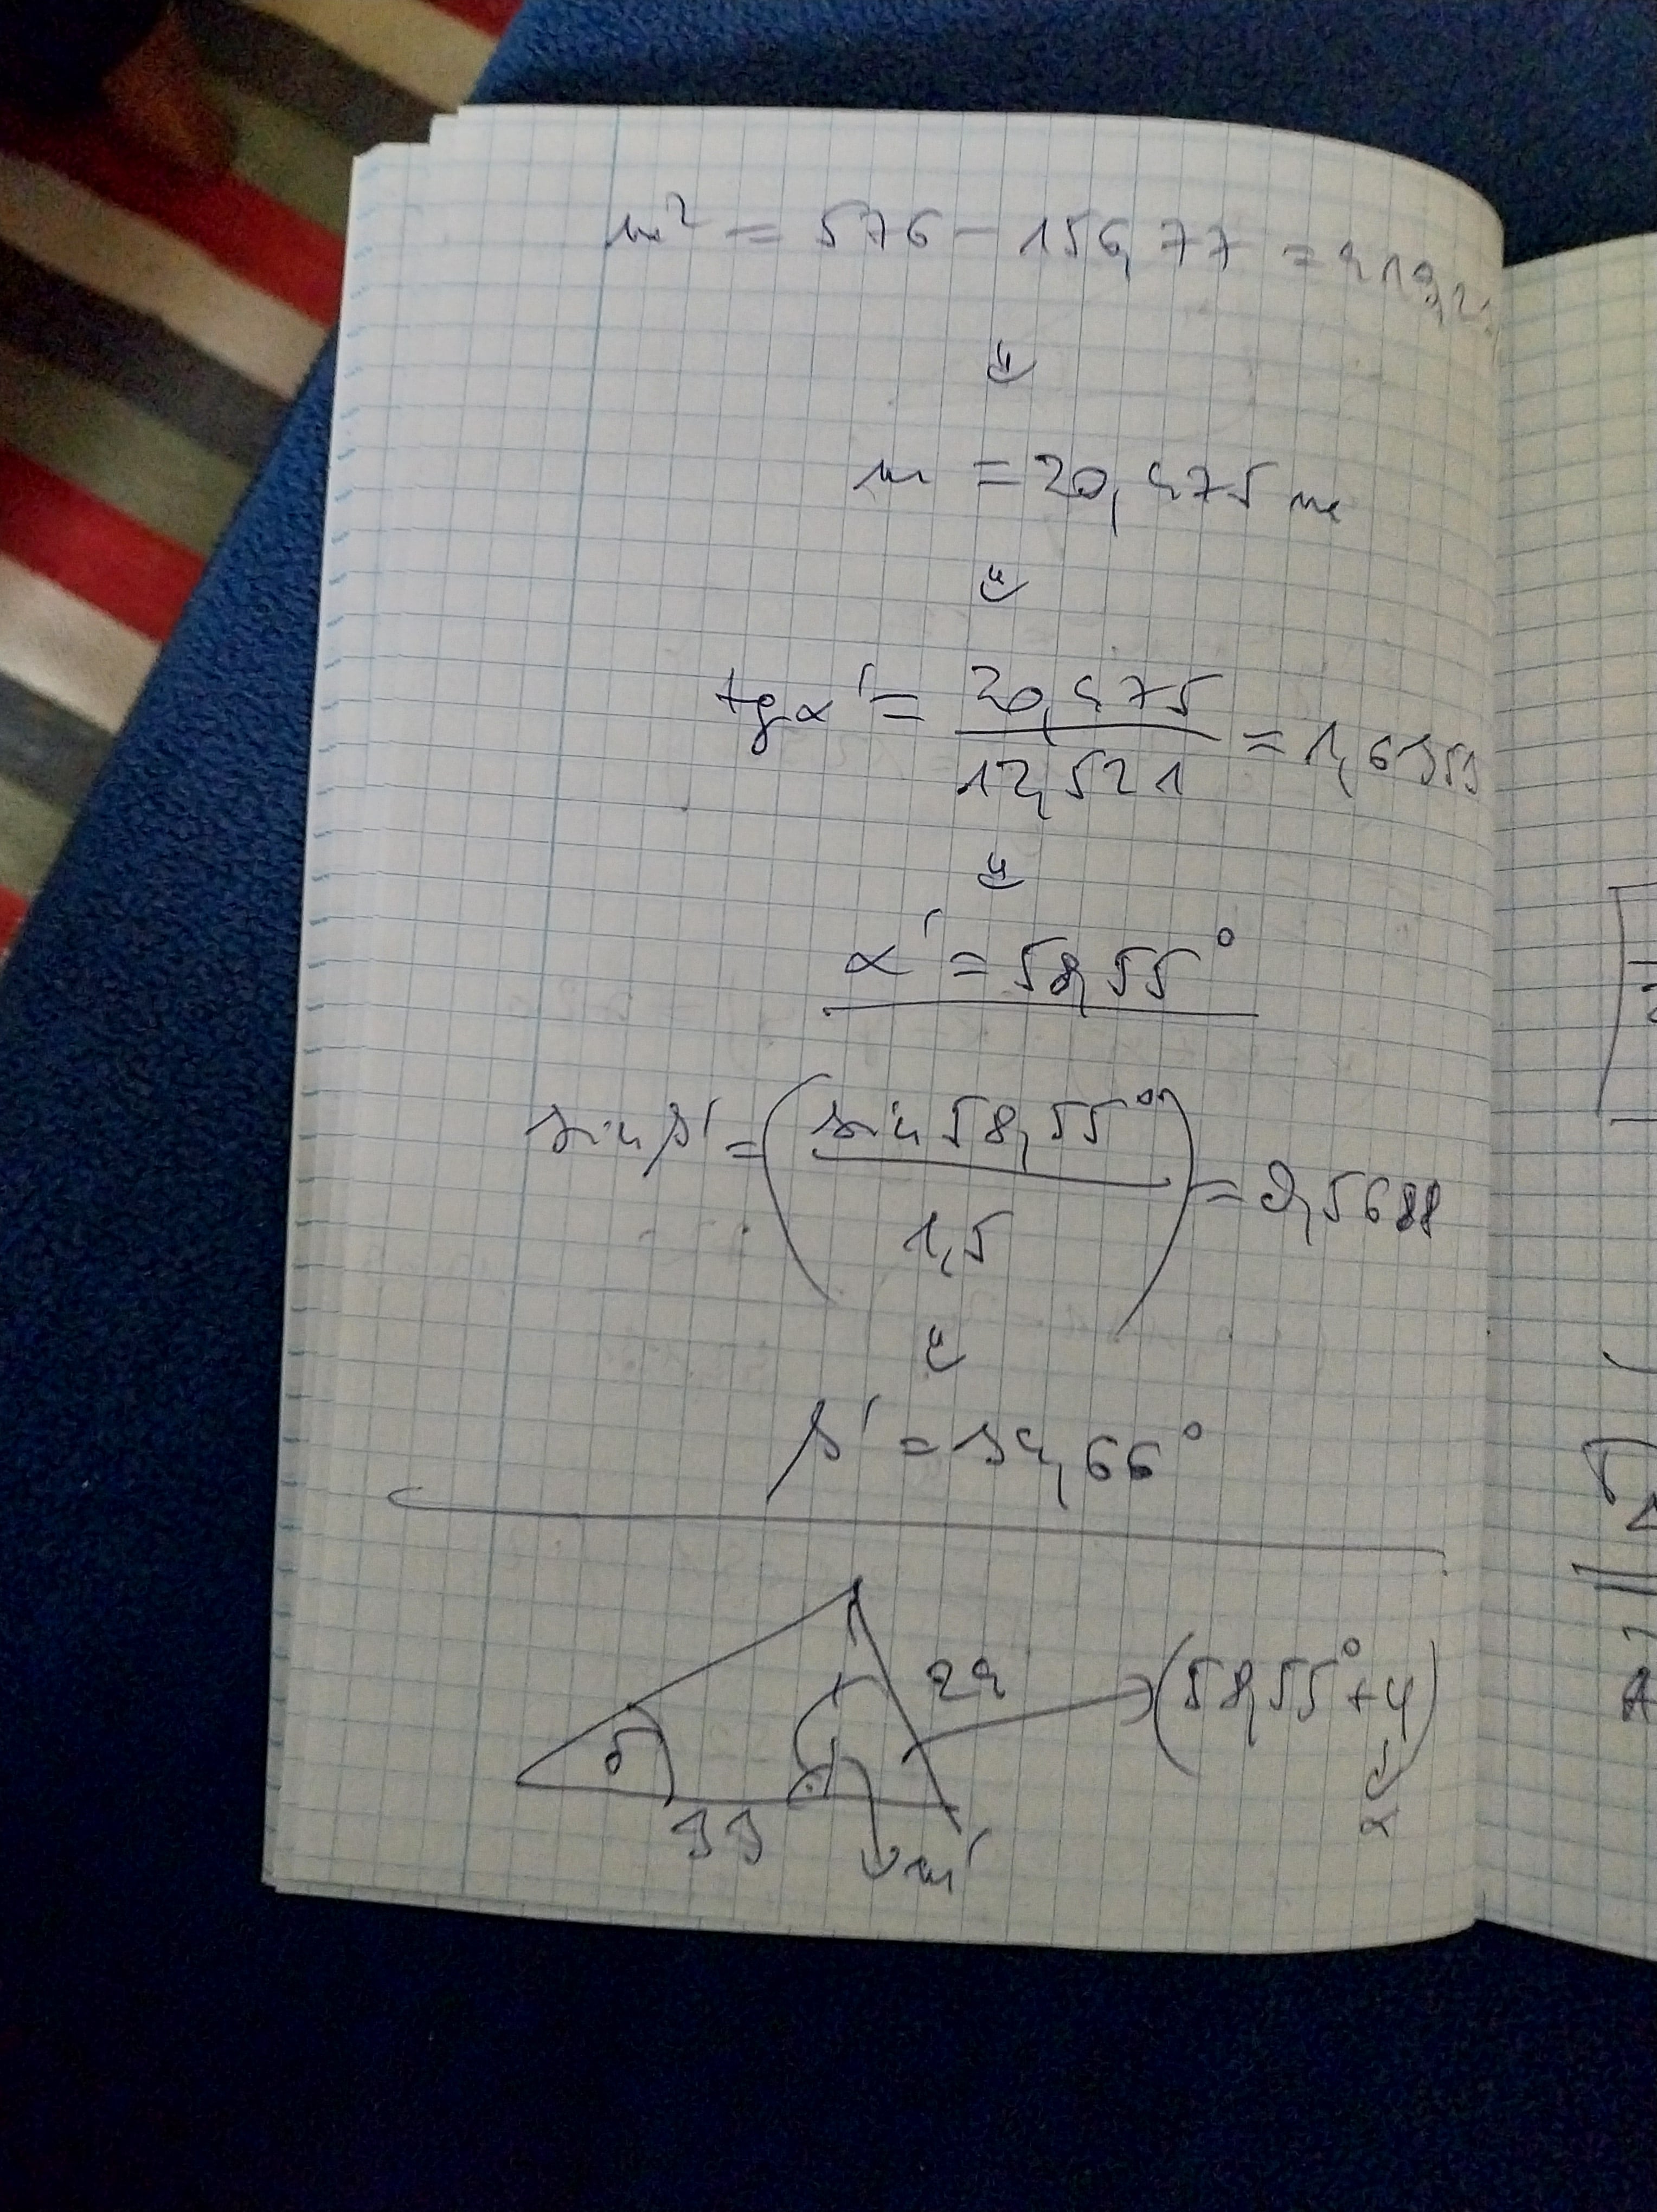 m² = 576 - 156,77 = 419,2
⇓
m = 20,475 m
⇓
tg α' = 20,475 / 12,521 = 1,6353
⇓
α' = 58,55°
sin β' = (sin 58,55° / 1,5) = 0,5688
⇓
β' = 34,66°
24
(58,55° + 4)
δ
33
m'
α